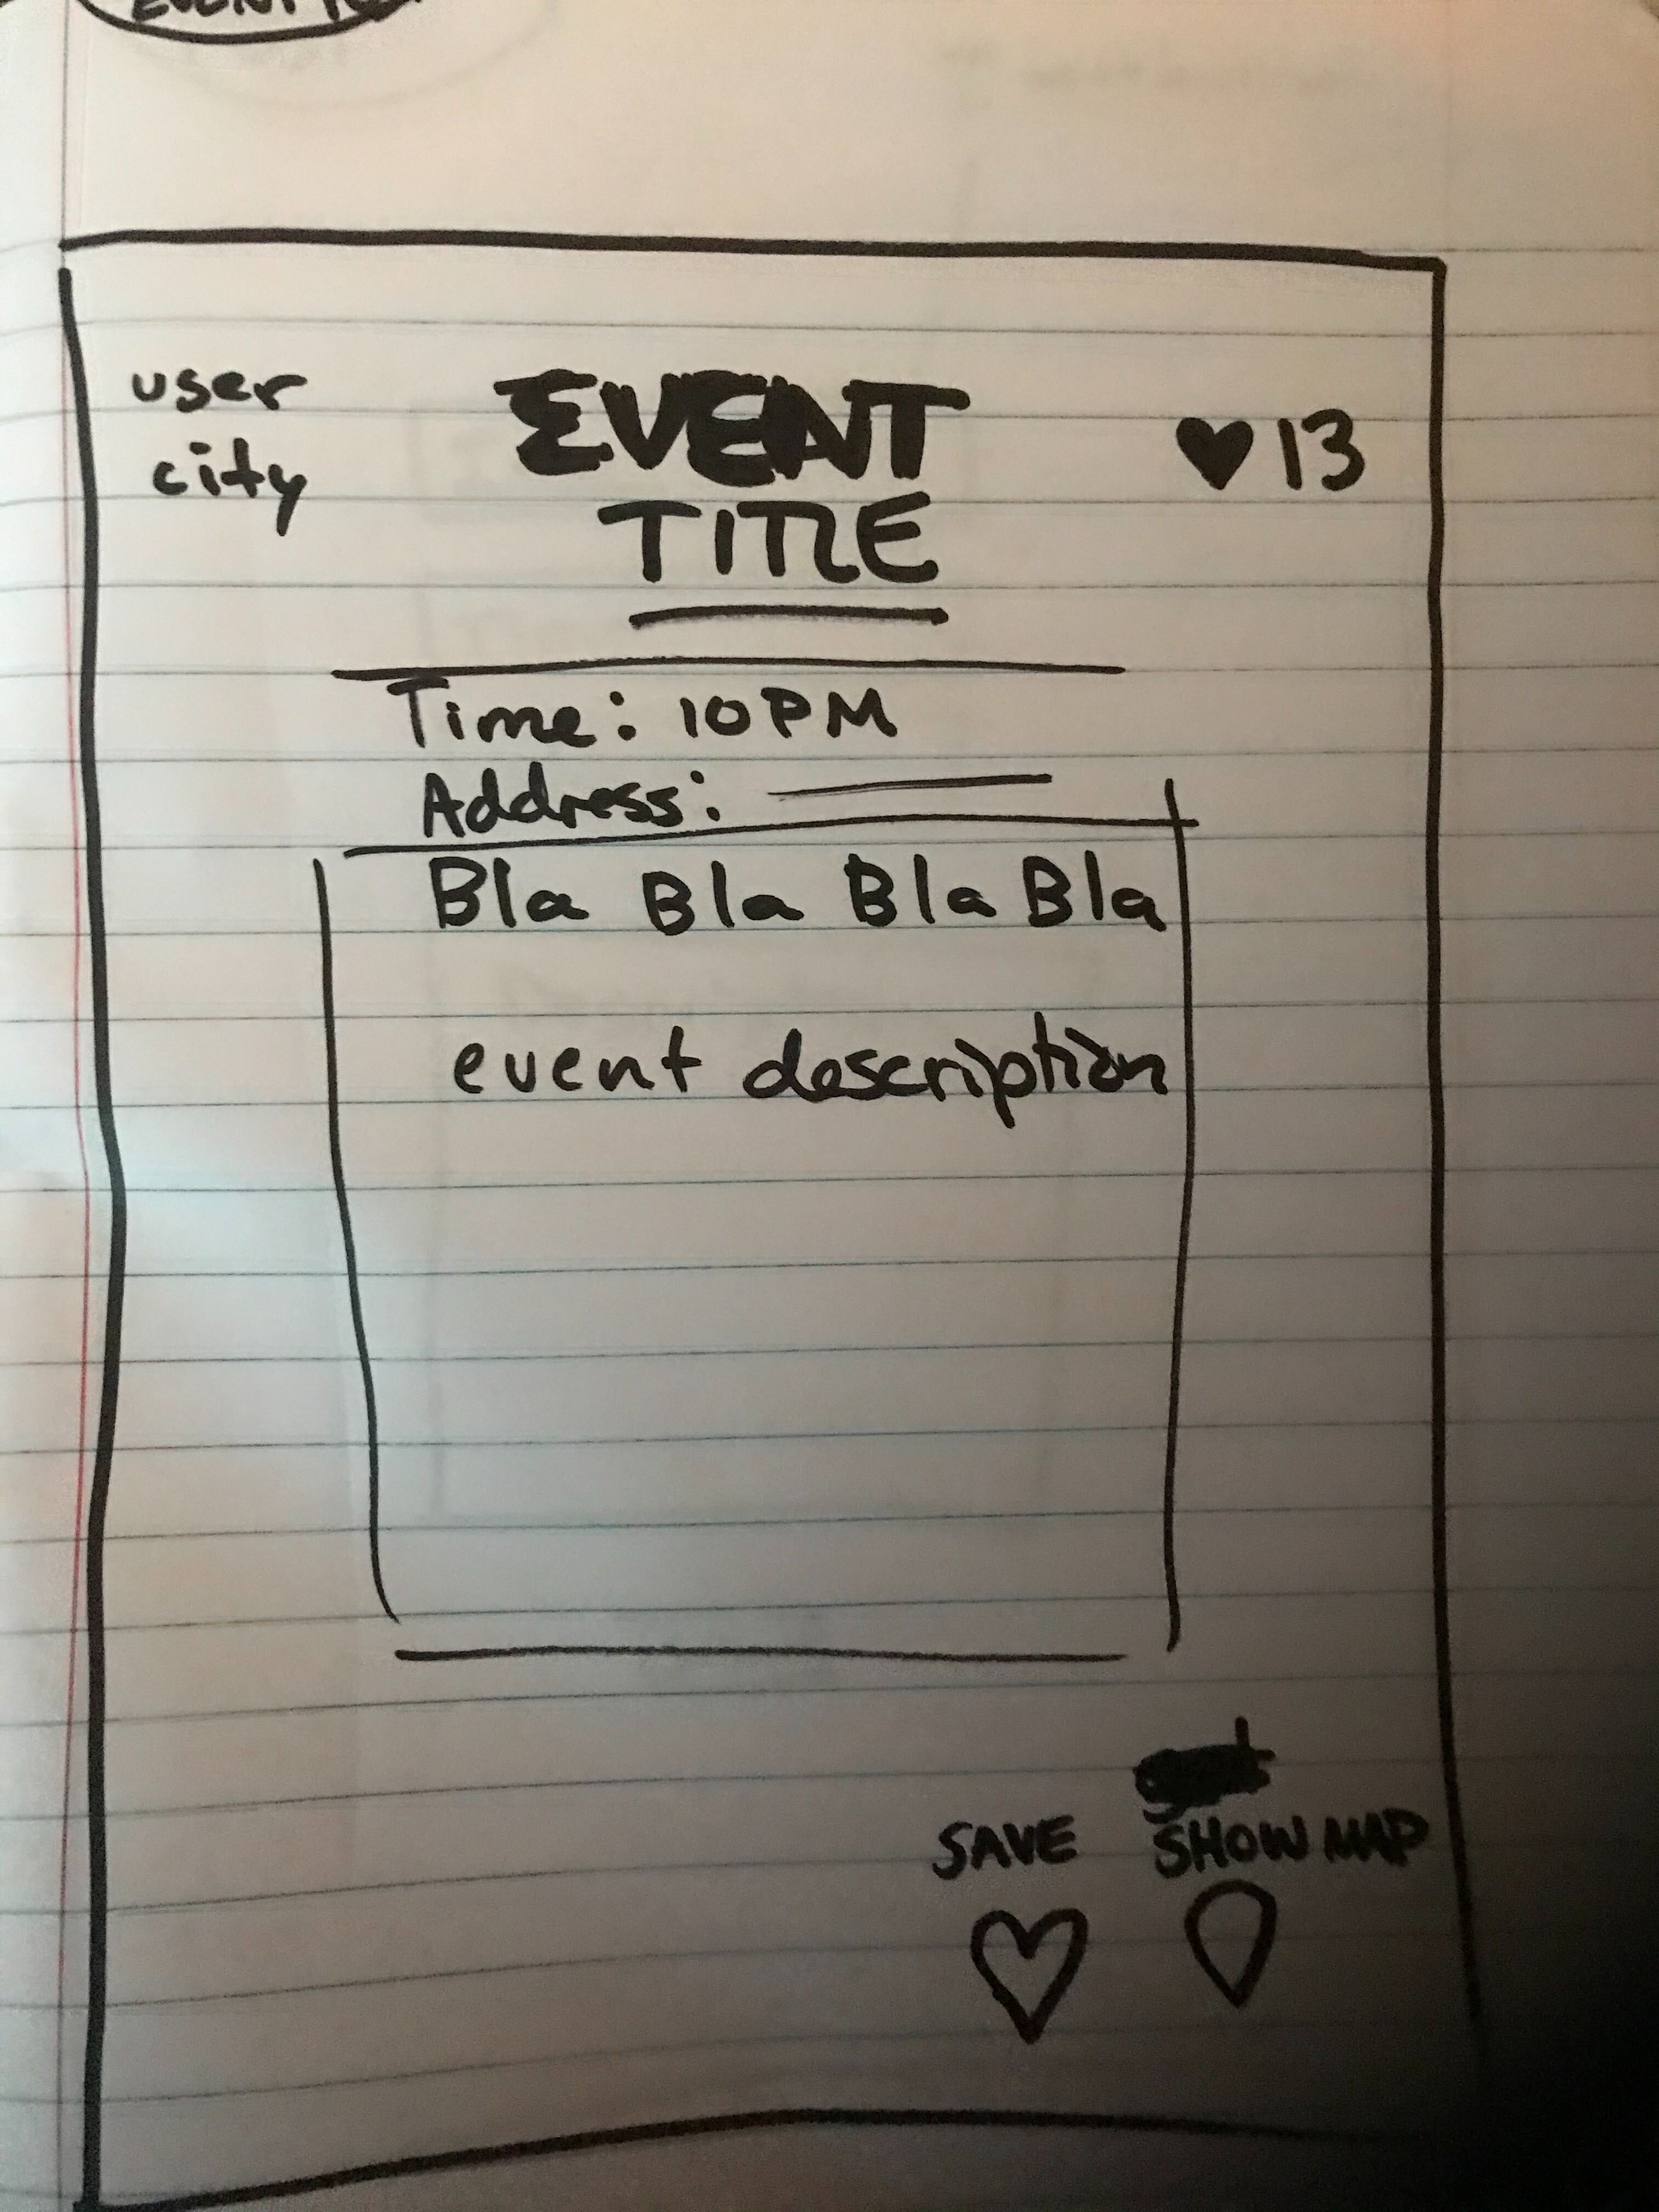 user
city
EVENT
TITLE
♥13
Time: 10PM
Address:
Bla Bla Bla Bla
event description
SAVE
SHOW MAP